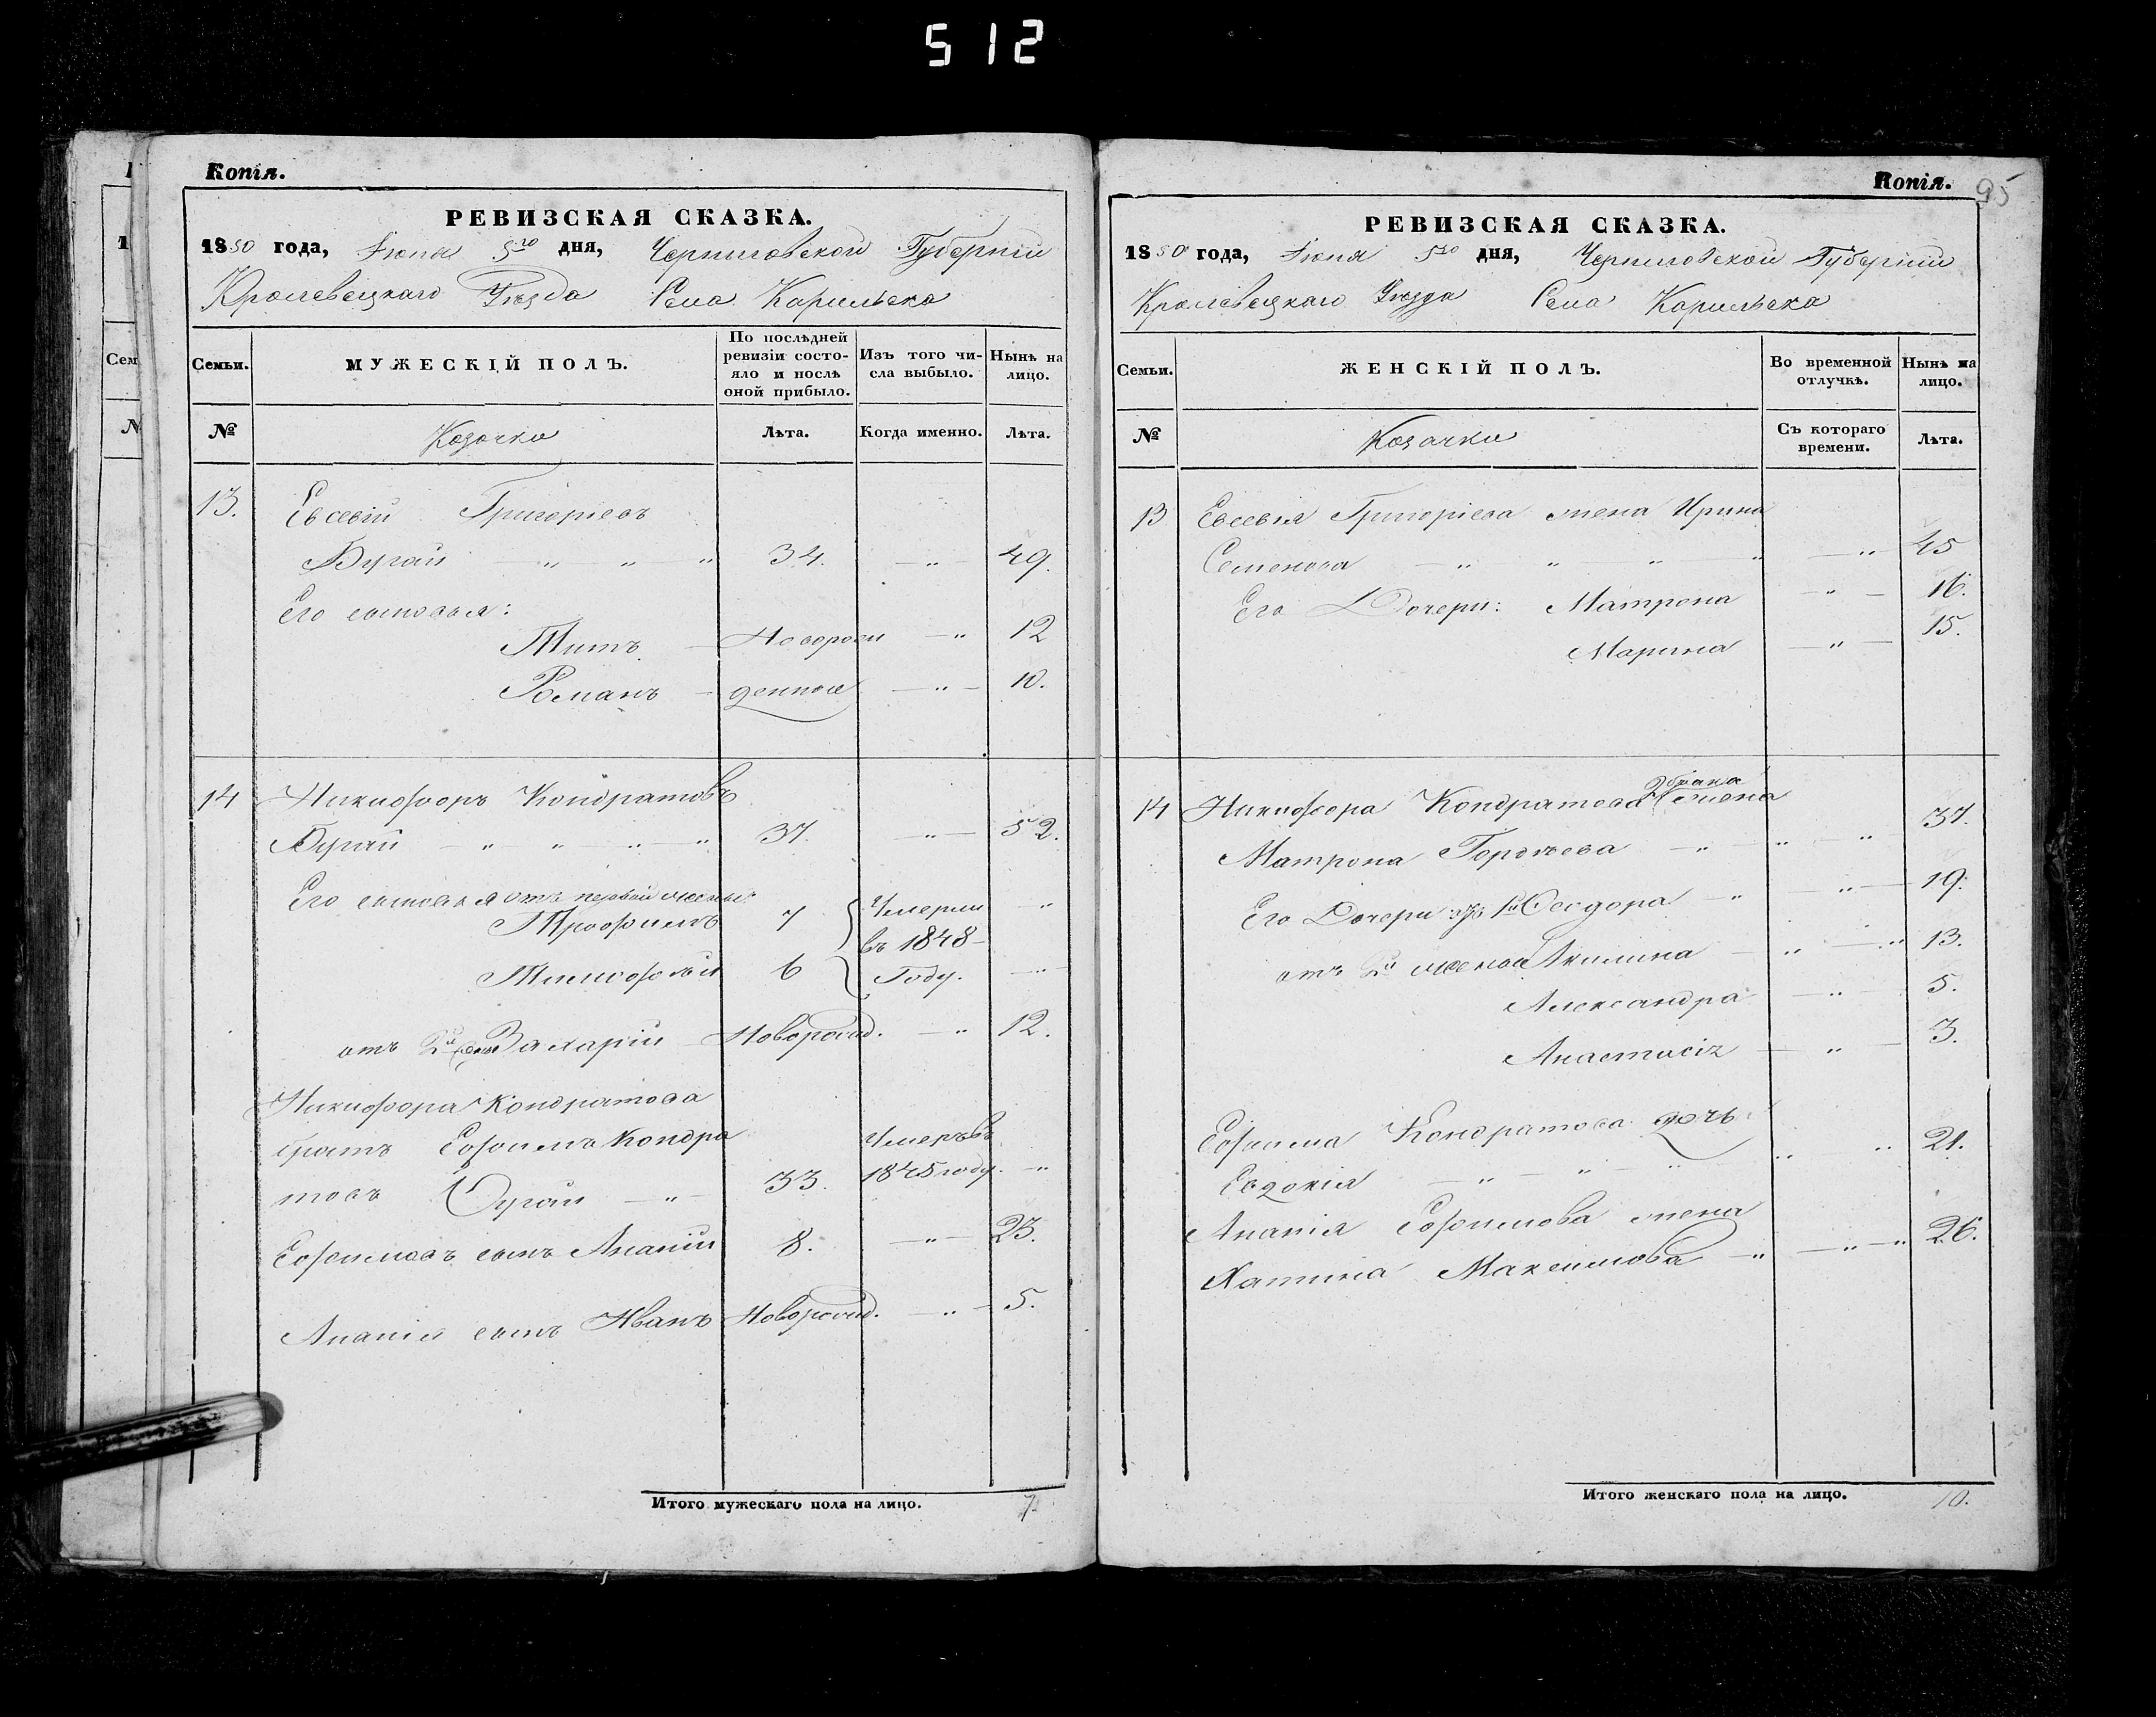 512
Копія.
РЕВИЗСКАЯ СКАЗКА.
1850 года, Іюня 5го дня, Черниговской Губерніи
Кролевецкаго Уѣзда Села Карильска
Семьи.
МУЖЕСКІЙ ПОЛЪ.
По послѣдней ревизіи состо-
яло и послѣ оной прибыло.
Изъ того чи-
сла выбыло.
Нынѣ на
лицо.
№
Козачки
Лѣта.
Когда именно.
Лѣта.
13. Евсевій Григорьевъ
Бугай 34. 49.
Его сыновья:
Титъ Новорож 12
Романъ денные 10.
14 Никифоръ Кондратовъ
Бугай 37. 52.
Его сыновья отъ первой жены:
Трофимъ 7 Умерли
въ 1848
Тимофей 6 Году.
отъ 2й Захарій Новорожд. 12.
Никифора Кондратова
братъ Ефимъ Кондра Умеръ въ
товъ Бугай 33. 1845 году.
Ефимовъ сынъ Ананій 8. 23.
Ананія сынъ Иванъ Новорожд. 5.
Итого мужескаго пола на лицо. 7.
Копія. 95
РЕВИЗСКАЯ СКАЗКА.
1850 года, Іюня 5го дня, Черниговской Губерніи
Кролевецкаго Уѣзда Села Карильска
Семьи.
ЖЕНСКІЙ ПОЛЪ.
Во временной
отлучкѣ.
Нынѣ на
лицо.
№
Козачки
Съ котораго
времени.
Лѣта.
13 Евсевія Григорьева жена Ирина
Семенова 45
Его Дочери: Матрона 16.
Марина 15.
2 брака
14 Никифора Кондратова жена
Матрона Гордѣева 37.
Его Дочери Феодора 19.
отъ 2й жены Акилина 13.
Александра 5.
Анастасія 3.
Ефима Кондратова дочь
Евдокія 21.
Ананія Ефимова жена
Максимова 26.
Итого женскаго пола на лицо. 10.